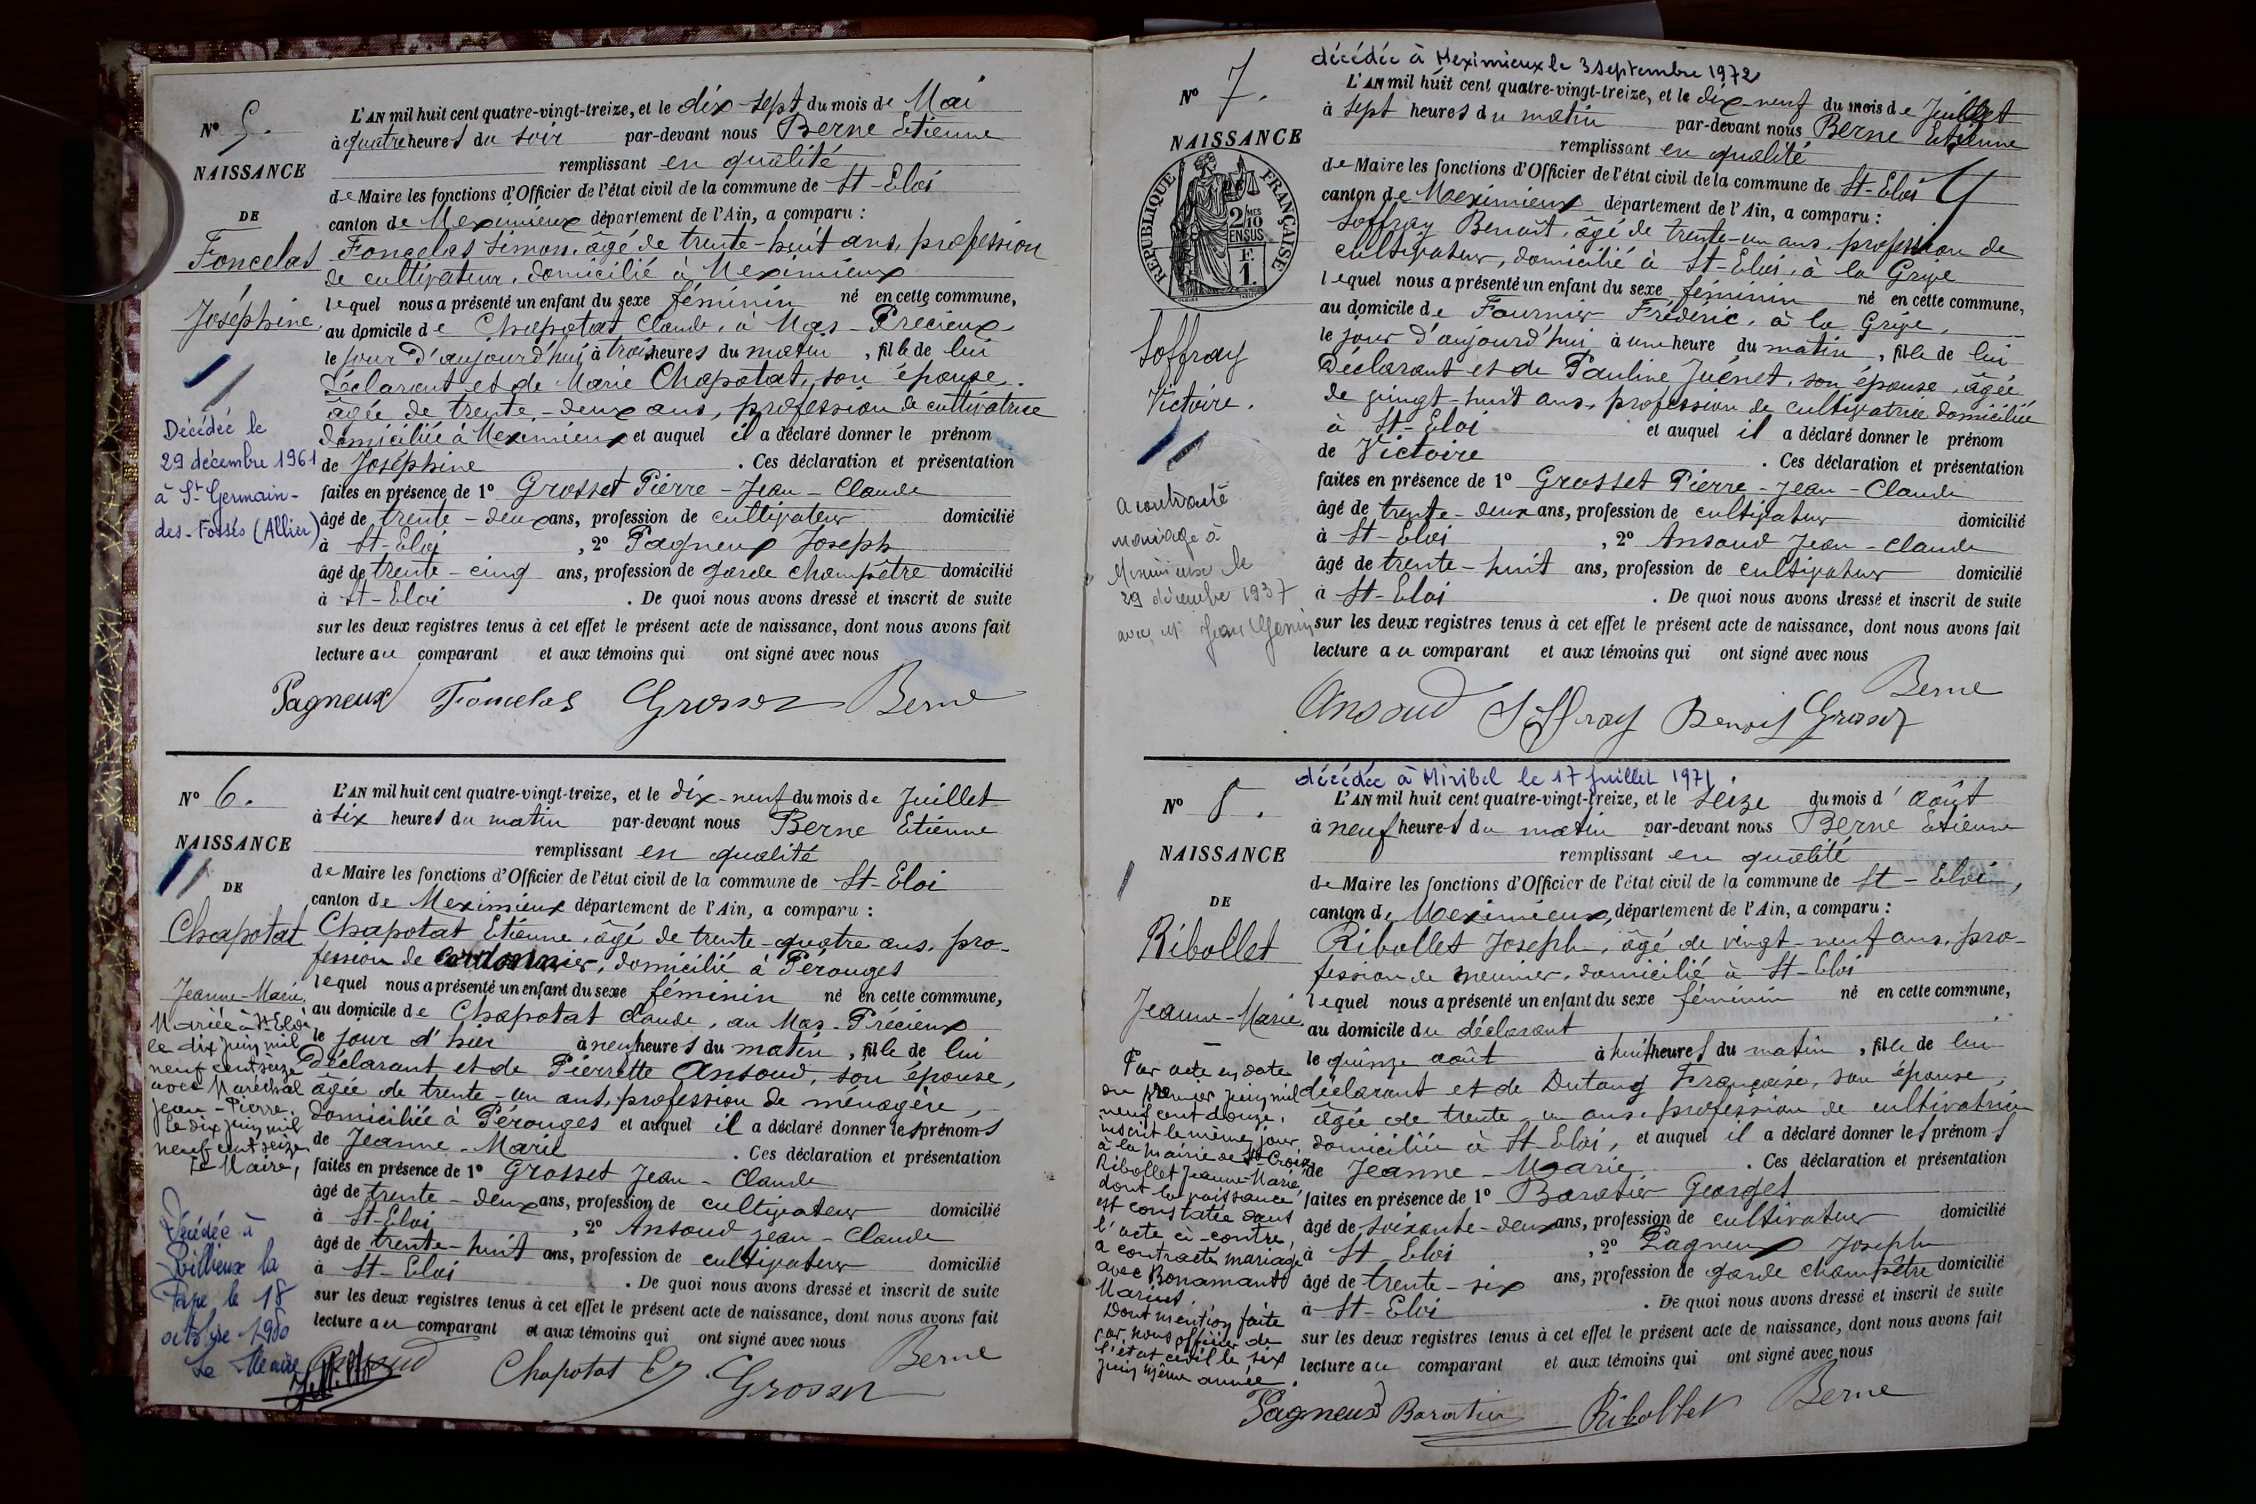 N° 5.
NAISSANCE
DE
Foncelas
Joséphine
Décédée le
29 décembre 1961
à St Germain-
des-Fossés (Allier)
L'AN mil huit cent quatre-vingt-treize, et le dix-sept du mois de Mai
à quatre heures du soir par-devant nous Berne Etienne
remplissant en qualité
de Maire les fonctions d'Officier de l'état civil de la commune de St-Eloi
canton de Meximieux département de l'Ain, a comparu :
Foncelas Simon, âgé de trente-huit ans, profession
de cultivateur, domicilié à Meximieux
lequel nous a présenté un enfant du sexe féminin né en cette commune,
au domicile de Chapotat Claude, à Mas-Précieux
le jour d'aujourd'hui à trois heures du matin, fille de lui
Déclarant et de Marie Chapotat, son épouse.
âgée de trente-deux ans, profession de cultivatrice
domiciliée à Meximieux et auquel il a déclaré donner le prénom
de Joséphine . Ces déclaration et présentation
faites en présence de 1° Grosset Pierre-Jean-Claude
âgé de trente-deux ans, profession de cultivateur domicilié
à St-Eloi , 2° Pagneux Joseph
âgé de trente-cinq ans, profession de garde champêtre domicilié
à St-Eloi . De quoi nous avons dressé et inscrit de suite
sur les deux registres tenus à cet effet le présent acte de naissance, dont nous avons fait
lecture au comparant et aux témoins qui ont signé avec nous
Pagneux Foncelas Grosset Berne
N° 6.
NAISSANCE
DE
Chapotat
Jeanne-Marie
Mariée à St Eloi
le dix juin mil
neuf cent seize
avec Maréchal
Jean-Pierre.
Le dix juin mil
neuf cent seize
Le Maire,
Décédée à
Rillieux la
Pape le 18
octobre 1980
Le Maire
L'AN mil huit cent quatre-vingt-treize, et le dix-neuf du mois de Juillet
à six heures du matin par-devant nous Berne Etienne
remplissant en qualité
de Maire les fonctions d'Officier de l'état civil de la commune de St-Eloi
canton de Meximieux département de l'Ain, a comparu :
Chapotat Etienne, âgé de trente-quatre ans, pro-
fession de cordonnier, domicilié à Pérouges
lequel nous a présenté un enfant du sexe féminin né en cette commune,
au domicile de Chapotat Claude, au Mas-Précieux
le jour d'hier à neuf heures du matin, fille de lui
Déclarant et de Pierrette Ansoud, son épouse,
âgée de trente-un ans, profession de ménagère,
domiciliée à Pérouges et auquel il a déclaré donner les prénoms
de Jeanne-Marie . Ces déclaration et présentation
faites en présence de 1° Grosset Jean-Claude
âgé de trente-deux ans, profession de cultivateur domicilié
à St-Eloi , 2° Ansoud Jean-Claude
âgé de trente-huit ans, profession de cultivateur domicilié
à St-Eloi . De quoi nous avons dressé et inscrit de suite
sur les deux registres tenus à cet effet le présent acte de naissance, dont nous avons fait
lecture au comparant et aux témoins qui ont signé avec nous
Ansoud Chapotat Et. Grosset Berne
décédée à Meximieux le 3 septembre 1972
N° 7.
NAISSANCE
RÉPUBLIQUE FRANÇAISE
2/10 MES EN SUS
F. 1.
Soffray
Victoire.
A contracté
mariage à
Meximieux le
29 décembre 1937
avec Mr Jean Genin
L'AN mil huit cent quatre-vingt-treize, et le dix-neuf du mois de Juillet
à sept heures du matin par-devant nous Berne Etienne
remplissant en qualité
de Maire les fonctions d'Officier de l'état civil de la commune de St-Eloi
canton de Meximieux département de l'Ain, a comparu :
Soffray Benoît, âgé de trente-un ans, profession de
cultivateur, domicilié à St-Eloi, à la Gripe
lequel nous a présenté un enfant du sexe féminin né en cette commune,
au domicile de Fournier Frédéric, à la Gripe,
le jour d'aujourd'hui à une heure du matin, fille de lui
Déclarant et de Pauline Juénet, son épouse, âgée
de vingt-huit ans, profession de cultivatrice domiciliée
à St-Eloi et auquel il a déclaré donner le prénom
de Victoire . Ces déclaration et présentation
faites en présence de 1° Grosset Pierre-Jean-Claude
âgé de trente-deux ans, profession de cultivateur domicilié
à St-Eloi , 2° Ansoud Jean-Claude
âgé de trente-huit ans, profession de cultivateur domicilié
à St-Eloi . De quoi nous avons dressé et inscrit de suite
sur les deux registres tenus à cet effet le présent acte de naissance, dont nous avons fait
lecture au comparant et aux témoins qui ont signé avec nous
Berne
Ansoud Soffray Benoit Grosset
décédée à Miribel le 17 juillet 1971
N° 8.
NAISSANCE
DE
Ribollet
Jeanne-Marie
Par acte en date
du premier juin mil
neuf cent douze,
inscrit le même jour
à la mairie de Ste-Croix
Ribollet Jeanne-Marie,
dont la naissance
est constatée dans
l'acte ci-contre,
a contracté mariage
avec Bonamant
Marius.
Dont mention faite
par nous officier de
l'état civil le six
juin même année.
L'AN mil huit cent quatre-vingt-treize, et le seize du mois d'août
à neuf heures du matin par-devant nous Berne Etienne
remplissant en qualité
de Maire les fonctions d'Officier de l'état civil de la commune de St-Eloi,
canton de Meximieux, département de l'Ain, a comparu :
Ribollet Joseph, âgé de vingt-neuf ans, pro-
fession de meunier, domicilié à St-Eloi
lequel nous a présenté un enfant du sexe féminin né en cette commune,
au domicile du déclarant
le quinze août à huit heures du matin, fille de lui
déclarant et de Dutang Françoise, son épouse,
âgée de trente un ans, profession de cultivatrice
domiciliée à St Eloi, et auquel il a déclaré donner les prénoms
de Jeanne-Marie . Ces déclaration et présentation
faites en présence de 1° Baratier Georges
âgé de soixante-deux ans, profession de cultivateur domicilié
à St Eloi , 2° Pagneux Joseph
âgé de trente-six ans, profession de garde champêtre domicilié
à St-Eloi . De quoi nous avons dressé et inscrit de suite
sur les deux registres tenus à cet effet le présent acte de naissance, dont nous avons fait
lecture au comparant et aux témoins qui ont signé avec nous
Pagneux Baratier Ribollet Berne